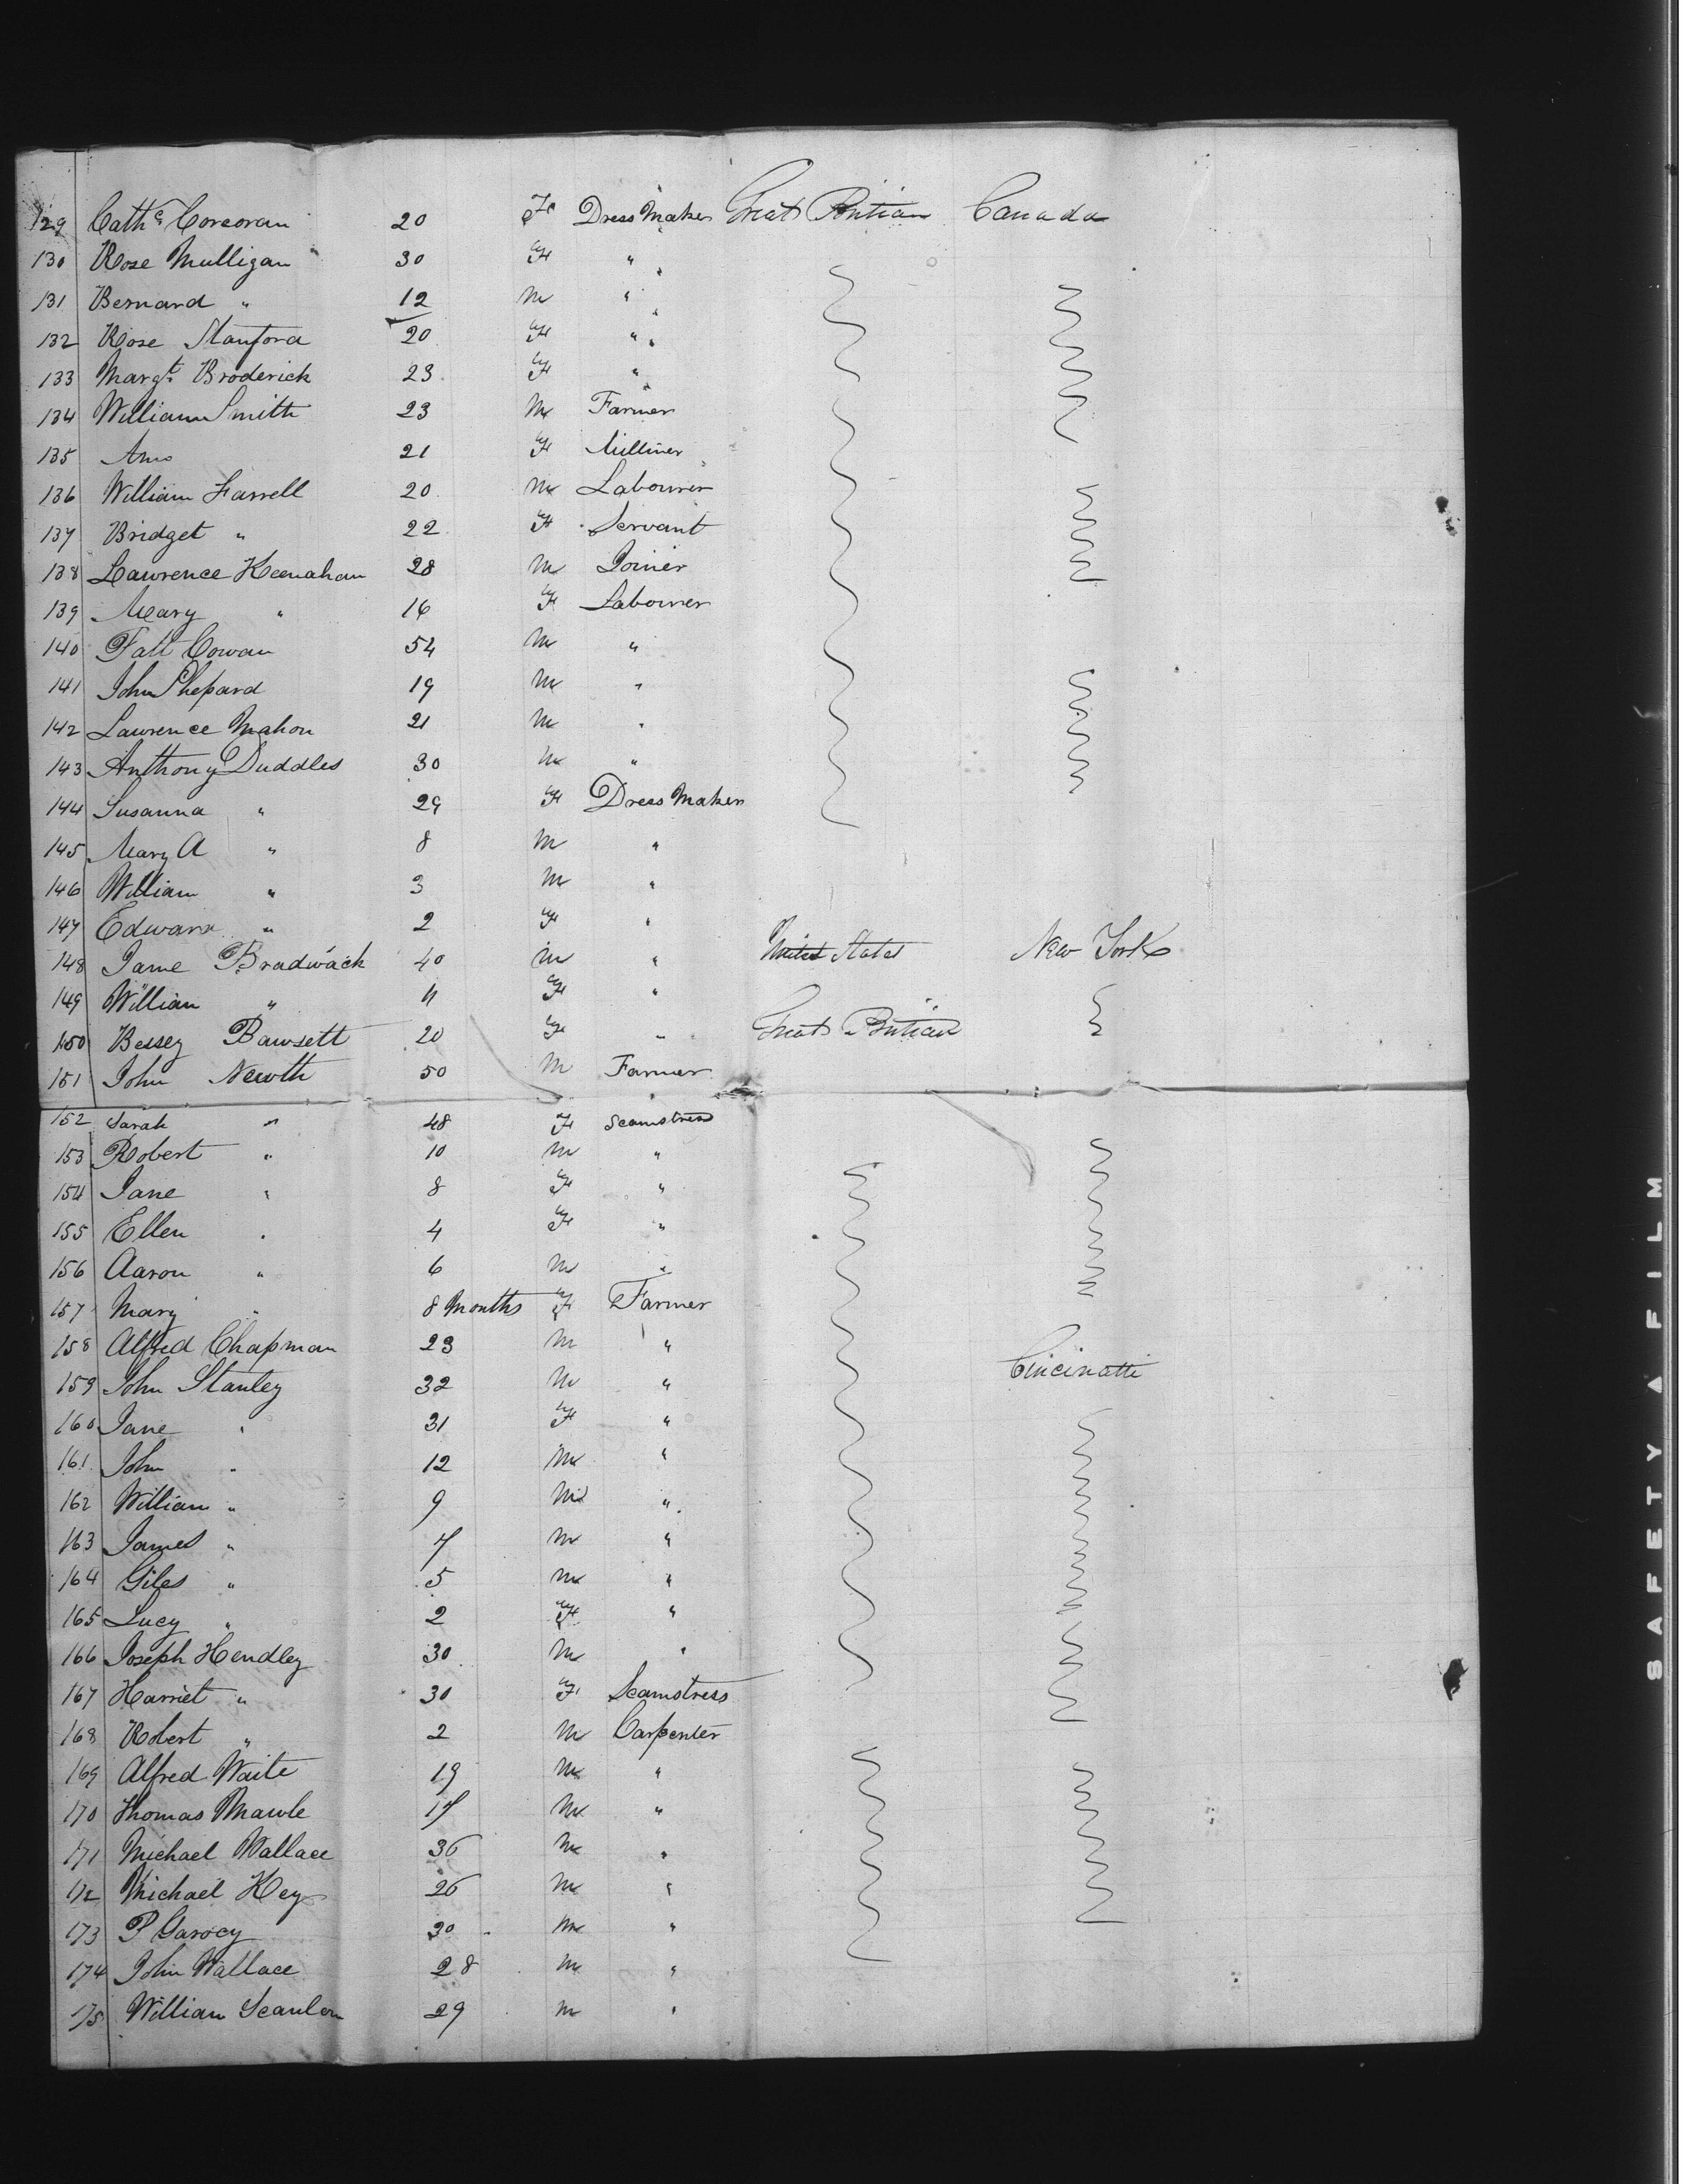 129 Cathe Corcoran 20 F Dress Maker Great Britian Canada
130 Rose Mulligan 30 F "
131 Bernard " 12 M "
132 Rose Stanford 20 F "
133 Margt Broderick 23 F "
134 William Smith 23 M Farmer
135 Ann 21 F Milliner
136 William Farrell 20 M Labourer
137 Bridget " 22 F Servant
138 Lawrence Keenahan 28 M Joiner
139 Mary " 16 F Labourer
140 Patt Cowan 54 M "
141 John Shepard 19 M "
142 Lawrence Mahon 21 M "
143 Anthony Duddles 30 M "
144 Susanna " 29 F Dress Maker
145 Mary A " 8 M "
146 William " 3 M "
147 Edward " 2 F "
148 Jame Bradwack 40 M " United States New York
149 William " 4 F "
150 Bessey Bawsett 20 F " Great Britian
151 John Newth 50 M Farmer
152 Sarah " 48 F Seamstress
153 Robert " 10 M "
154 Jane " 8 F "
155 Ellen " 4 F "
156 Aaron " 6 M "
157 Mary " 8 Months F Farmer
158 Alfred Chapman 23 M "
159 John Stanley 32 M " Cincinatti
160 Jane " 31 F "
161 John " 12 M "
162 William " 9 M "
163 James " 7 M "
164 Giles " 5 M "
165 Lucy " 2 F "
166 Joseph Hendley 30 M "
167 Harriet " 30 F Seamstress
168 Robert " 2 M Carpenter
169 Alfred Waite 19 M "
170 Thomas Mawle 17 M "
171 Michael Wallace 36 M "
172 Michael Key 26 M "
173 P 30 M "
174 John Wallace 28 M "
175 William Scanlon 29 M "
SAFETY A FILM